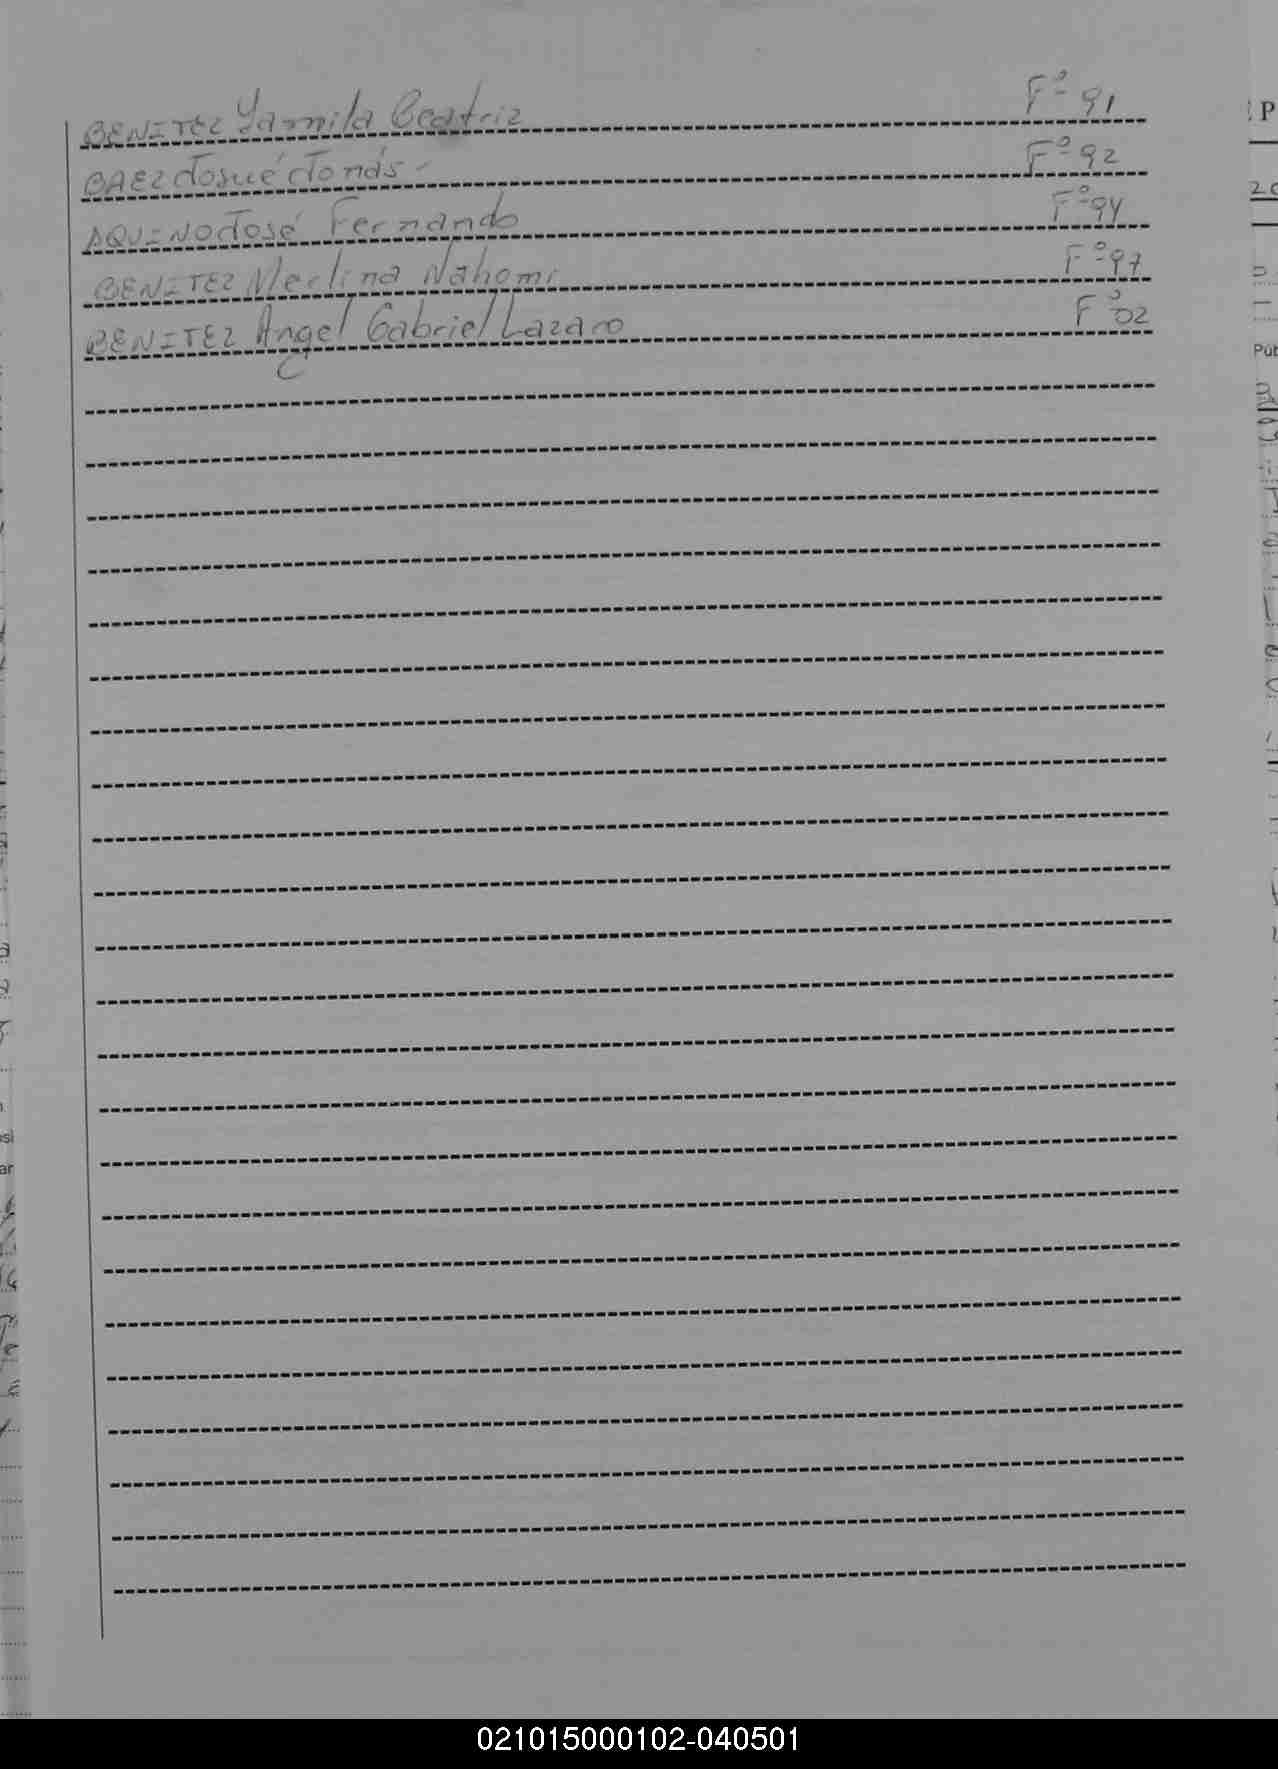 BENITEZ Yamila Beatriz F° 91
BAEZ Josué Jonás - F° 92
AQUINO José Fernando F° 94
BENITEZ Merlina Nahomi F° 97
BENITEZ Angel Gabriel Lazaro F° 02
021015000102-040501